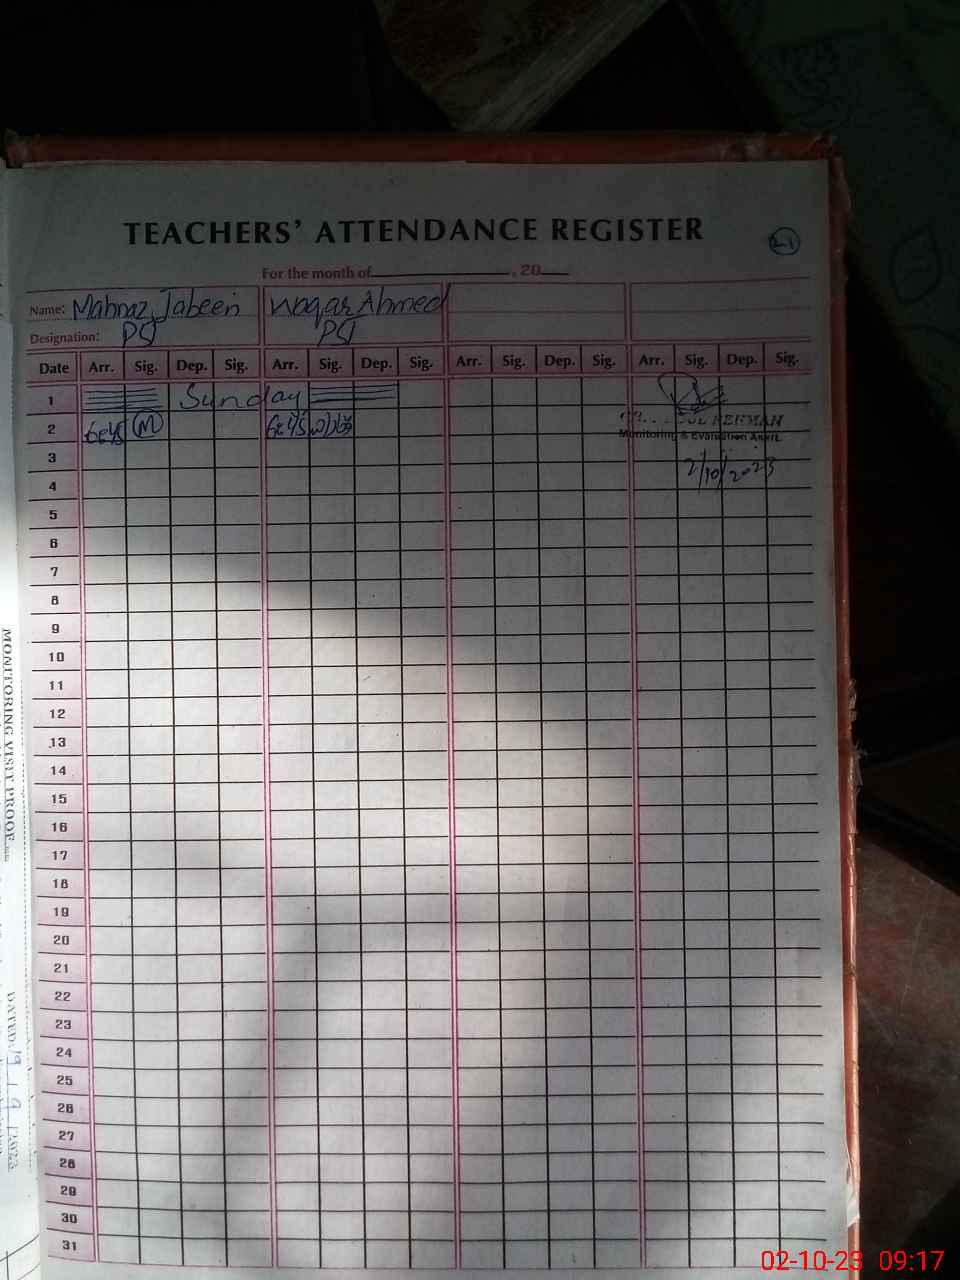 TEACHERS' ATTENDANCE REGISTER
2-1
For the month of , 20
Name: Mahnaz Jabeen Waqar Ahmed
Designation: PST PST
Date Arr. Sig. Dep. Sig. Arr. Sig. Dep. Sig. Arr. Sig. Dep. Sig. Arr. Sig. Dep. Sig.
1 Sunday
2 M
REHMAN
Monitoring & Evaluation Asstt.
3
2/10/2023
4
5
6
7
8
9
10
11
12
13
14
15
16
17
18
19
20
21
22
23
24
25
26
27
28
29
30
31
MONITORING VISIT PROOF
DATED: 19/9/2023
02-10-23 09:17